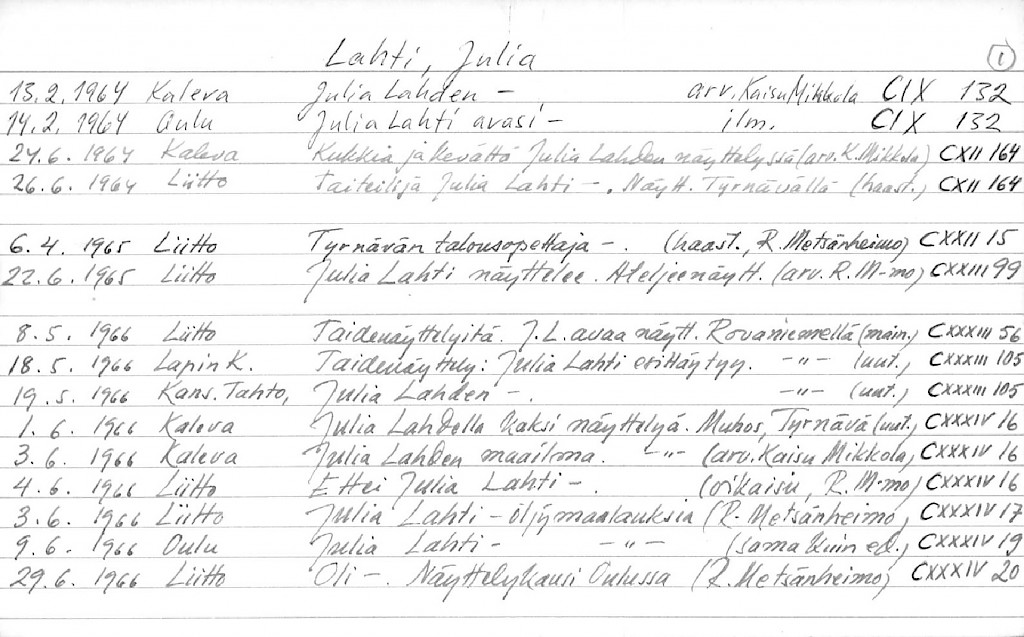 Lahti, Julia 1
13.2.1964 Kaleva Julia Lahden – arv. Kaisu Mikkola CIX 132
14.2.1964 Oulu Julia Lahti avasi – ilm. CIX 132
24.6.1964 Kaleva Kukkia ja kevättä Julia Lahden näyttelyssä (arv. K. Mikkola) CXII 164
26.6.1964 Liitto Taiteilija Julia Lahti –. Näytt. Tyrnävällä (haast.) CXII 164
6.4.1965 Liitto Tyrnävän talousopettaja –. (haast., R. Metsänheimo) CXXII 15
22.6.1965 Liitto Julia Lahti näyttelee. Ateljeenäytt. (arv. R. M-mo) CXXIII 99
8.5.1966 Liitto Taidenäyttelyitä. J.L. avaa näytt. Rovaniemellä (main.) CXXXIII 56
18.5.1966 Lapin K. Taidenäyttely: Julia Lahti esittäytyy. –"– (uut.) CXXXIII 105
19.5.1966 Kans. Tahto, Julia Lahden –. –"– (uut.) CXXXIII 105
1.6.1966 Kaleva Julia Lahdella kaksi näyttelyä. Muhos, Tyrnävä (uut.) CXXXIV 16
3.6.1966 Kaleva Julia Lahden maailma. –"– (arv. Kaisu Mikkola) CXXXIV 16
4.6.1966 Liitto Ettei Julia Lahti –. (oikaisu, R. M-mo) CXXXIV 16
3.6.1966 Liitto Julia Lahti – öljymaalauksia (R. Metsänheimo) CXXXIV 17
9.6.1966 Oulu Julia Lahti – –"– (sama kuin ed.) CXXXIV 19
29.6.1966 Liitto Oli –. Näyttelykausi Oulussa (R. Metsänheimo) CXXXIV 20